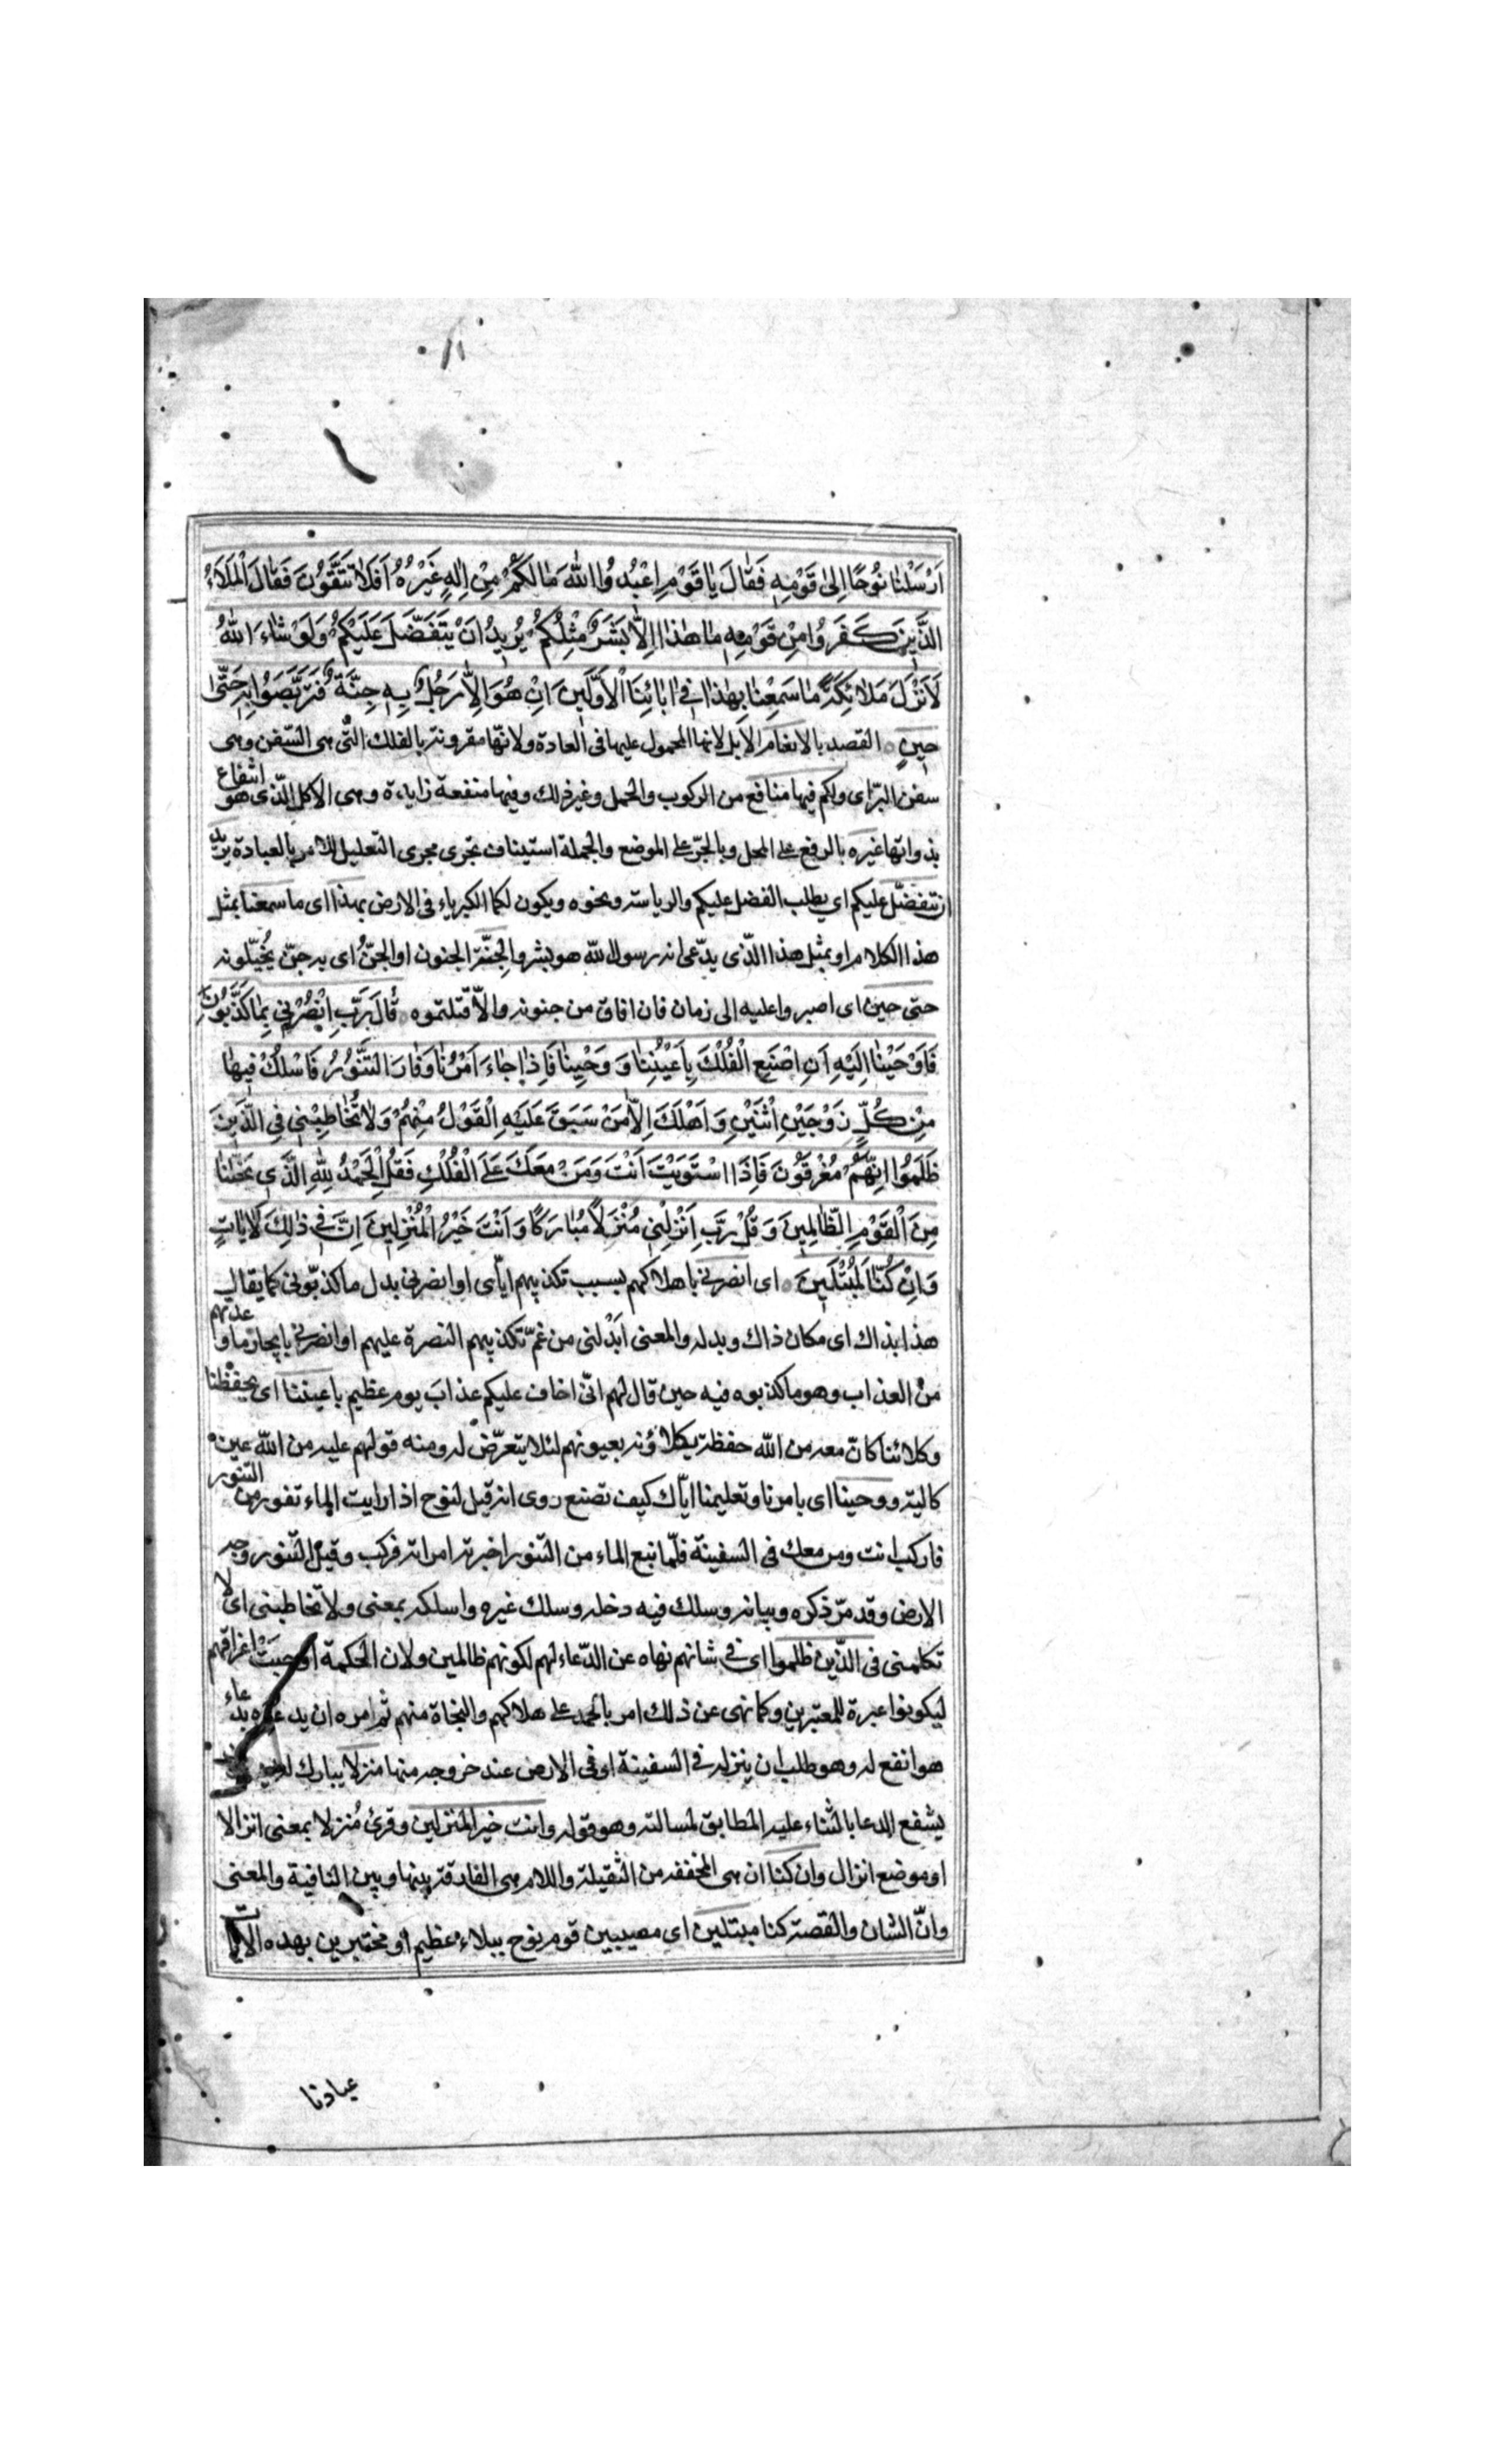 اَرْسَلْنٰا نُوحًا اِلىٰ قَوْمِهِ فَقٰالَ يٰا قَوْمِ اعْبُدُوا اللّٰهَ مٰا لَكُمْ مِنْ اِلٰهٍ غَيْرُهُ اَفَلاٰ تَتَّقُونَ فَقٰالَ الْمَلَاءُ
الَّذِينَ كَفَرُوا مِنْ قَوْمِهِ مٰا هٰذٰا اِلاّٰ بَشَرٌ مِثْلُكُمْ يُرِيدُ اَنْ يَتَفَضَّلَ عَلَيْكُمْ وَلَوْ شٰاءَ اللّٰهُ
لَاَنْزَلَ مَلاٰئِكَةً مٰا سَمِعْنٰا بِهٰذٰا فِي اٰبٰائِنَا الْاَوَّلِينَ اِنْ هُوَ اِلاّٰ رَجُلٌ بِهِ جِنَّةٌ فَتَرَبَّصُوا بِهِ حَتّٰى
حِينٍ القصد بالانعام الابل لانها المحمول عليها فى العادة ولانّها مقرونة بالفلك الّتى هى السّفن وهى
سفن البرّ اى ولكم فيها منافع من الركوب والحمل وغير ذلك وفيها منفعة زايدة وهى الاكل الّذى هو انتفاع
بذواتها غيره بالرفع على المحل وبالجرّ على الموضع والجملة استيناف تجرى مجرى التعليل للامر بالعبادة يريد
ان يتفضّل عليكم اي يطلب الفضل عليكم والرياسة ونحوه ويكون لكما الكبرياء فى الارض بهذا اى ما سمعنا بمثل
هذا الكلام او بمثل هذا الّذى يدّعى انه رسول اللّه هو بشر والجِنّة الجنون او الجنّ اى به جنّ يُخيّلونه
حتى حين اى اصبروا عليه الى زمان فان افاق من جنونه والاّ قتلتموه قٰالَ رَبِّ انْصُرْنِي بِمٰا كَذَّبُونِ
فَاَوْحَيْنٰا اِلَيْهِ اَنِ اصْنَعِ الْفُلْكَ بِاَعْيُنِنٰا وَ وَحْيِنٰا فَاِذٰا جٰاءَ اَمْرُنٰا وَفٰارَ التَّنُّورُ فَاسْلُكْ فِيهٰا
مِنْ كُلٍّ زَوْجَيْنِ اثْنَيْنِ وَاَهْلَكَ اِلاّٰ مَنْ سَبَقَ عَلَيْهِ الْقَوْلُ مِنْهُمْ وَلاٰ تُخٰاطِبْنِي فِي الَّذِينَ
ظَلَمُوا اِنَّهُمْ مُغْرَقُونَ فَاِذَا اسْتَوَيْتَ اَنْتَ وَمَنْ مَعَكَ عَلَى الْفُلْكِ فَقُلِ الْحَمْدُ لِلّٰهِ الَّذِي نَجّٰينٰا
مِنَ الْقَوْمِ الظّٰالِمِينَ وَ قُلْ رَبِّ اَنْزِلْنِي مُنْزَلاً مُبٰارَكًا وَاَنْتَ خَيْرُ الْمُنْزِلِينَ اِنَّ فِي ذٰلِكَ لَاٰيٰاتٍ
وَاِنْ كُنّٰا لَمُبْتَلِينَ اى انصرنى باهلاكهم بسبب تكذيبهم ايّاى او انصرنى بدل ما كذّبونى كما يقال
هذا بذاك اى مكان ذاك وبدله والمعنى ابدلنى من غمّ تكذيبهم النصرة عليهم او انصرنى بايجاز ما وعدتهم
من العذاب وهو ما كذبوه فيه حين قال لهم انّى اخاف عليكم عذابَ يوم عظيم باعيننا اى بحفظنا
وكلائنا كانّ معه من اللّه حفظة يكلاؤنه بعيونهم لئلا يتعرّض له ومنه قولهم عليه من اللّه عين
كالية ووحينا اى بامرنا وتعليمنا ايّاك كيف تصنع روى انه قيل لنوح اذا رايت الماء تفور من التنور
فاركب انت ومن معك فى السفينة فلمّا نبع الماء من التنور اخبرته امراته فركب وقيل التنور وجه
الارض وقد مرّ ذكره وبيانه وسلك فيه دخله وسلك غيره واسلكه بمعنى ولا تخاطبنى اى لا
تكلمنى فى الّذين ظلموا اى فى شانهم نهاه عن الدّعاء لهم لكونهم ظالمين ولان الحكمة اوجبَتْ اغراقهم
ليكونوا عبرة للمعتبرين وكما نهى عن ذلك امر بالحمد على هلاكهم والنجاة منهم ثم امره ان يدعُوه بدعاء
هو انفع له وهو طلب ان ينزله فى السفينة او فى الارض عند خروجه منها منزلا يبارك له
يشفع الدعا بالثناء عليه المطابق لمسالته وهو قوله وانت خير المنزلين وقرئ مُنزلا بمعنى انزالا
او موضع انزال وان كنا ان هى المخففه من الثقيلة واللام هى الفارقة بينها وبين النافية والمعنى
وانّ الشان والقصّة كنا مبتلين اى مصيبين قوم نوح ببلاء عظيم او مختبرين بهذه الآيات
عبادنا